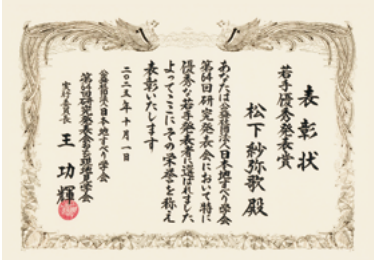 表彰状
若手優秀発表賞
松下紗弥歌殿
あなたは公益社団法人日本地すべり学会
第64回研究発表会において特に
優秀な若手発表者に選ばれました
よってここにその栄誉を称え
表彰いたします
二〇二五年十月一日
公益社団法人日本地すべり学会
第64回研究発表会
実行委員長
王功輝